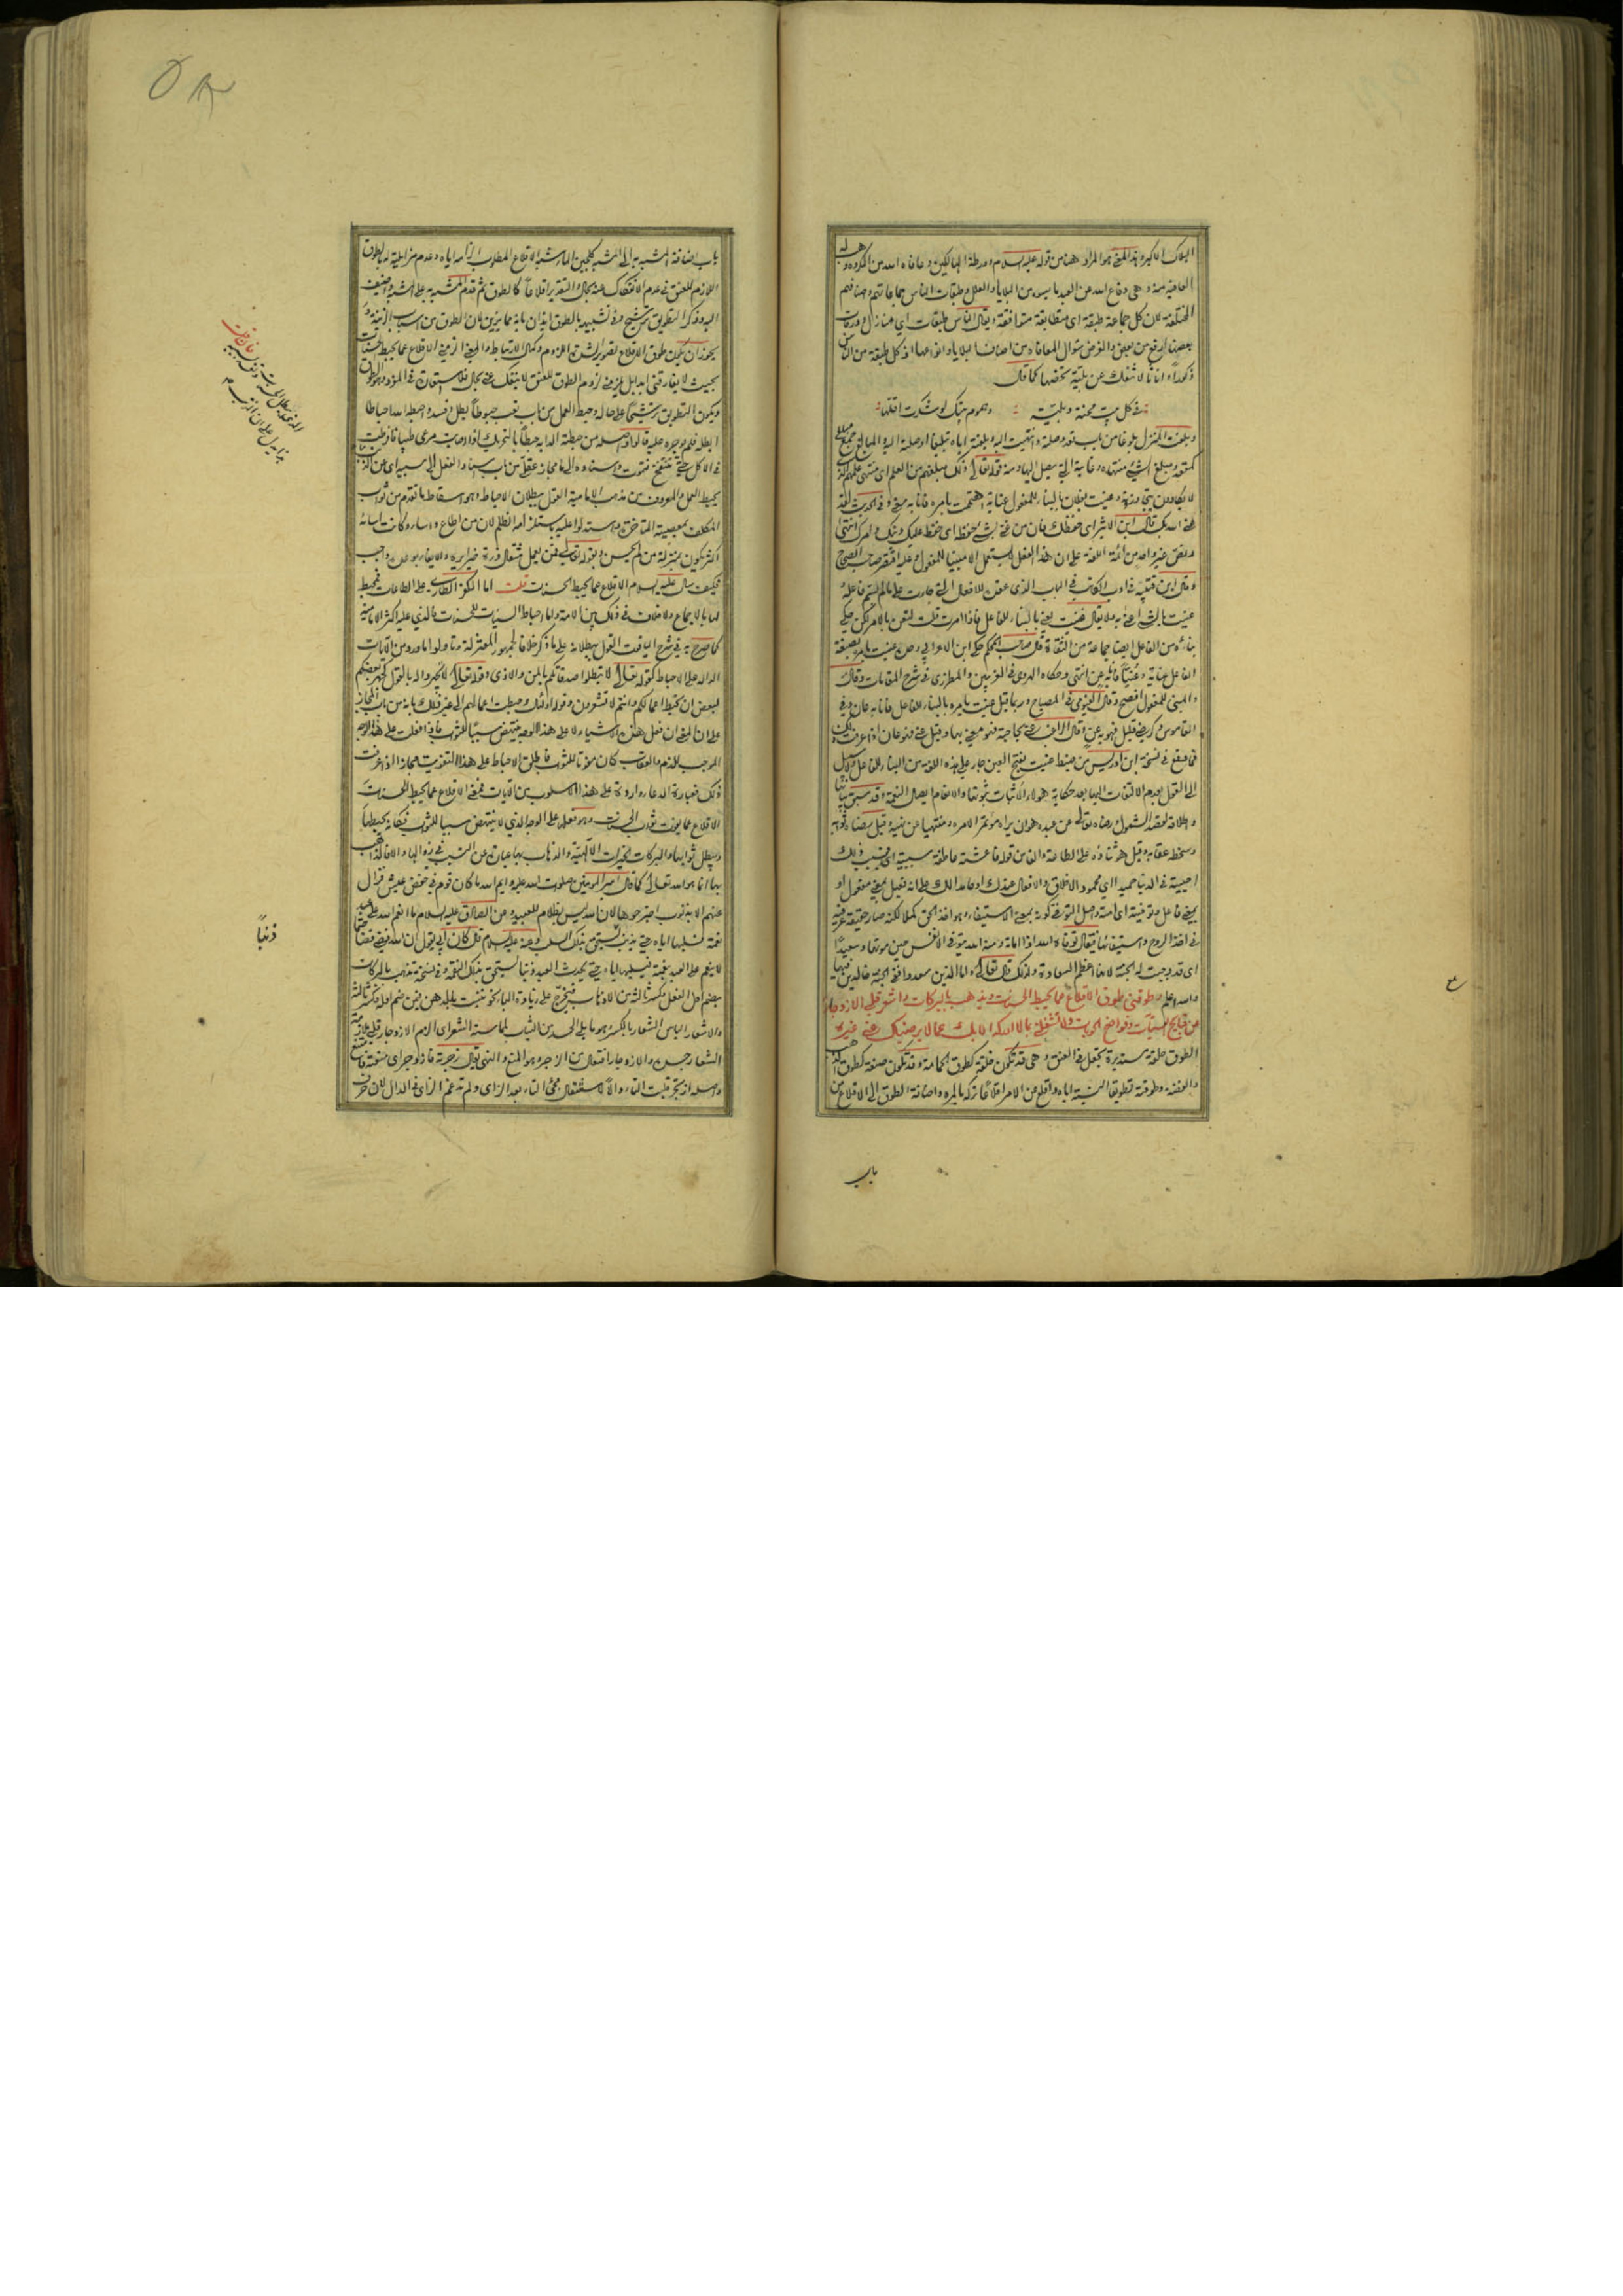 الهلاك الاكبر وهذا المعنى هو المراد هنا من قوله عليه السلام ورطة الهالكين وعافاه الله من المكروه وهب له
العافية منه وهى دفاع الله عن العبد ما يسوءه من البلايا والعلل وطبقات الناس جماعاتهم واصنافهم
المختلفة لان كل جماعة طبقة اى متطابقة متوافقة ويقال الناس طبقات اى منازل ودرجات
بعضها ارفع من بعض والغرض سؤال المعافاة من اصناف البلايا وانواعها اذ كل طبقة من الناس
ذكورا واناثا لا تنفك عن بلية تخصها كما قال
فى كل بيت محنة وبلية وهموم بيتك لو شكرت اقلها
وبلغت المنزل بلوغا من باب قعد وصلته وانتهيت اليه وبلغته اياه تبليغا اوصلته اليه والمبالغ جمع مبلغ
كمقعد ومبلغ الشئ منتهاه وغايته التى يصل اليها ومنه قوله تعالى ذلك مبلغهم من العلم اى منتهى علمهم الذى
لا يكادون يتجاوزونه وعنيت بفلان بالبناء للمفعول عناية اهتممت بامره فانا به معنى وفى الحديث لقد
عنى الله بك قال ابن الاثير اى حفظك فان من عنى بشئ حفظه اى حفظ عليك دينك وامرك انتهى
ونص غير واحد من ائمة اللغة على ان هذا الفعل لا يستعمل الا مبنيا للمفعول وعليه اقتصر صاحب الفصيح
وقال ابن قتيبة فى ادب الكاتب فى الباب الذى عقده للافعال التى جاءت على ما لم يسم فاعله
عنيت بالشئ اعنى به ولا يقال عنيت بعنى بالبناء للفاعل فاذا امرت قلت لتعن بالامر لكن حكى
بناءه من الفاعل ايضا جماعة من الثقاة قال صاحب المحكم حكى ابن الاعرابى وحده عنيت بامره بصيغة
الفاعل عناية وعنيا فانا به عن انتهى وحكاه الهروى فى الغريبين والمطرزى فى شرح المقامات وقال
والمبنى للمفعول افصح وقال الفيومى فى المصباح وربما قيل عنيت بامره بالبناء للفاعل فانا به عان وفى
القاموس وكرضى قليل فهو به عن وقال الراغب عنى بحاجته فهو معنى بها وقيل عنى فهو عان اذا عرفت ذلك
فما وقع فى نسخة ابن ادريس من ضبط عنيت بفتح العين جار على هذه اللغة من البناء للفاعل ولا سبيل
الى القول بعدم الالتفات اليها بعد حكاية هؤلاء الاثبات ثبوتها والانعام ايصال النعمة وقد سبق بيانها
واطلاقه لقصد الشمول ورضاه تعالى عن عبده هو ان يراه مؤتمرا لامره ومنتهيا عن نهيه وقيل رضاه ثوابه
وسخطه عقابه وقيل هو ثناؤه على الطاعة والفاء من قوله فاعشته عاطفة سببية اى فبسبب ذلك
احييته فى الدنيا حميدا اى محمود الاخلاق والافعال عندك او حامدا لك على انه فعيل بمعنى مفعول او
بمعنى فاعل وتوفيته اى امته واصل التوفى كونه بمعنى الاستيفاء وهو اخذ الحق كملا لكنه صار حقيقة عرفية
فى اخذ الروح واستيفائها فيقال توفاه الله اذا اماته ومنه الله يتوفى الانفس حين موتها وسعيدا
اى قد وجبت له الجنة لانها اعظم السعادة ولذلك قال تعالى واما الذين سعدوا ففى الجنة خالدين فيها
والله اعلم وطوقنى طوق الاقلاع عما يحبط الحسنات ويذهب بالبركات واشعر قلبى الازدجار
عن قبايح السيئات وفواضح الحوبات ولا تشغلنى بما لا ادركه الا بك عما لا يرضيك عنى غيره
الطوق حلقة مستديرة تجعل فى العنق وهى قد تكون خلقة كطوق الحمامة وقد تكون صنعة كطوق الذهب
والفضة وطوقته تطويقا البسته اياه واقلع عن الامر اقلاعا تركه بالمره واضافة الطوق الى الاقلاع من
باب
باب اضافة المشبه به الى المشبه كلجين الماء شبه الاقلاع المطلوب الزامه اياه وعدم مزايلته له بالطوق
اللازم للعنق فى عدم الانفكاك عنه بحال والتقدير اقلاعا كالطوق ثم قدم المشبه به على المشبه واضيف
اليه وذكر التطويق ترشيح وفى تشبيهه بالطوق ايذان بانه مما يزين لان الطوق من اسباب الزينة و
يجوز ان يكون طوق الاقلاع تصويرا لشدة اللزوم وكمال الارتباط والمعنى الزمنى الاقلاع عما يحبط الحسنات
بحيث لا يفارقنى ابدا بل يلزمنى لزوم الطوق للعنق لا ينفك عنى بحال فلا استعارة فى المفرد وهو الطوق
ويكون التطويق ترشيحا على حاله وحبط العمل من باب تعب حبوطا بطل وفسد واحبطه الله احباطا
ابطله فلم يوجره عليه قالوا واصله من حبطت الدابه حبطا بالتحريك اذا اصابت مرعى طيبا فافرطت
فى الاكل حتى تنتفخ فتموت واسناده الى ما مجاز عقلى من باب اسناد الفعل الى سببه اى عن الذنب
يحبط العمل والمعروف من مذهب الامامية القول ببطلان الاحباط وهو اسقاط ما تقدم من ثواب
المكلف بمعصيته المتاخرة واستدلوا عليه باستلزامه الظلم لان من اطاع واساء وكانت اساءته
اكثر يكون بمنزلة من لم يحسن وبقوله تعالى فمن يعمل مثقال ذرة خيرا يره والايفاء بوعده واجب
فكيف سال عليه السلام الاقلاع عما يحبط الحسنات قلت اما الكفر الطارى على الطاعات فمحبط
لها بالاجماع ولا خلاف فى ذلك بين الامة واما احباط السيئات للحسنات فالذى عليه اكثر الامامية
كما صرح به فى شرح الياقوت القول ببطلانه على ما ذكر خلافا لجمهور المعتزلة وتاولوا ما ورد من الآيات
الدالة على الاحباط كقوله تعالى لا تبطلوا صدقاتكم بالمن والاذى وقوله تعالى لا تجهروا له بالقول كجهر بعضكم
لبعض ان تحبط اعمالكم وانتم لا تشعرون وقوله اولئك حبطت اعمالهم الى غير ذلك بانه من باب المجاز
على ان المعنى ان فعل هذه الاشياء لا على هذا الوجه ينتهض سببا للثواب فاذا فعلت على هذا الوجه
الموجب للذم والعقاب كان مفوتا للثواب فاطلق الاحباط على هذا التفويت مجازا اذا عرفت
ذلك فعبارة الدعاء واردة على هذا الاسلوب من الآيات فمعنى الاقلاع عما يحبط الحسنات
الاقلاع عما يفوت ثواب الحسنات وهو فعلها على الوجه الذى لا ينتهض سببا للثواب فكانه يحبطها
ويبطل ثوابها والبركات الخيرات الآلهية والذهاب بها عبارة عن التسبب فى زوالها والا فالذاهب
بها انما هو الله تعالى كما قال امير المؤمنين صلوات الله عليه وايم الله ما كان قوم فى خفض عيش فزال
عنهم الا بذنوب اجترحوها لان الله ليس بظلام للعبيد وعن الصادق عليه السلام ما انعم الله على عبد
نعمة فسلبها اياه حتى يذنب ذنبا يستحق بذلك السلب وعنه عليه السلام قال كان ابى يقول ان الله قضى قضاء حتما
لا ينعم على العبد بنعمة فيسلبها اياه حتى يحدث العبد ذنبا يستحق بذلك النقمة وفى نسخة تذهب بالبركات
بضم اول الفعل وكسر ثالثه من الاذهاب فيخرج على زيادة الباء نحو تنبت بالدهن فيمن ضم اوله وكسر ثالثه
والاشعار الباس الشعار بالكسر وهو ما يلى الجسد من الثياب لمماسته الشعر اى الزم الازدجار قلبى ملازمة
الشعار جسده والازدجار افتعال من الزجر وهو المنع والنهى يقال زجرته فازدجر اى منعته فامتنع
واصله ازتجر قلبت التاء دالا لاستثقال مجئ التاء بعد الزاى ولم تدغم الزاى فى الدال لان حرف
ذنبا